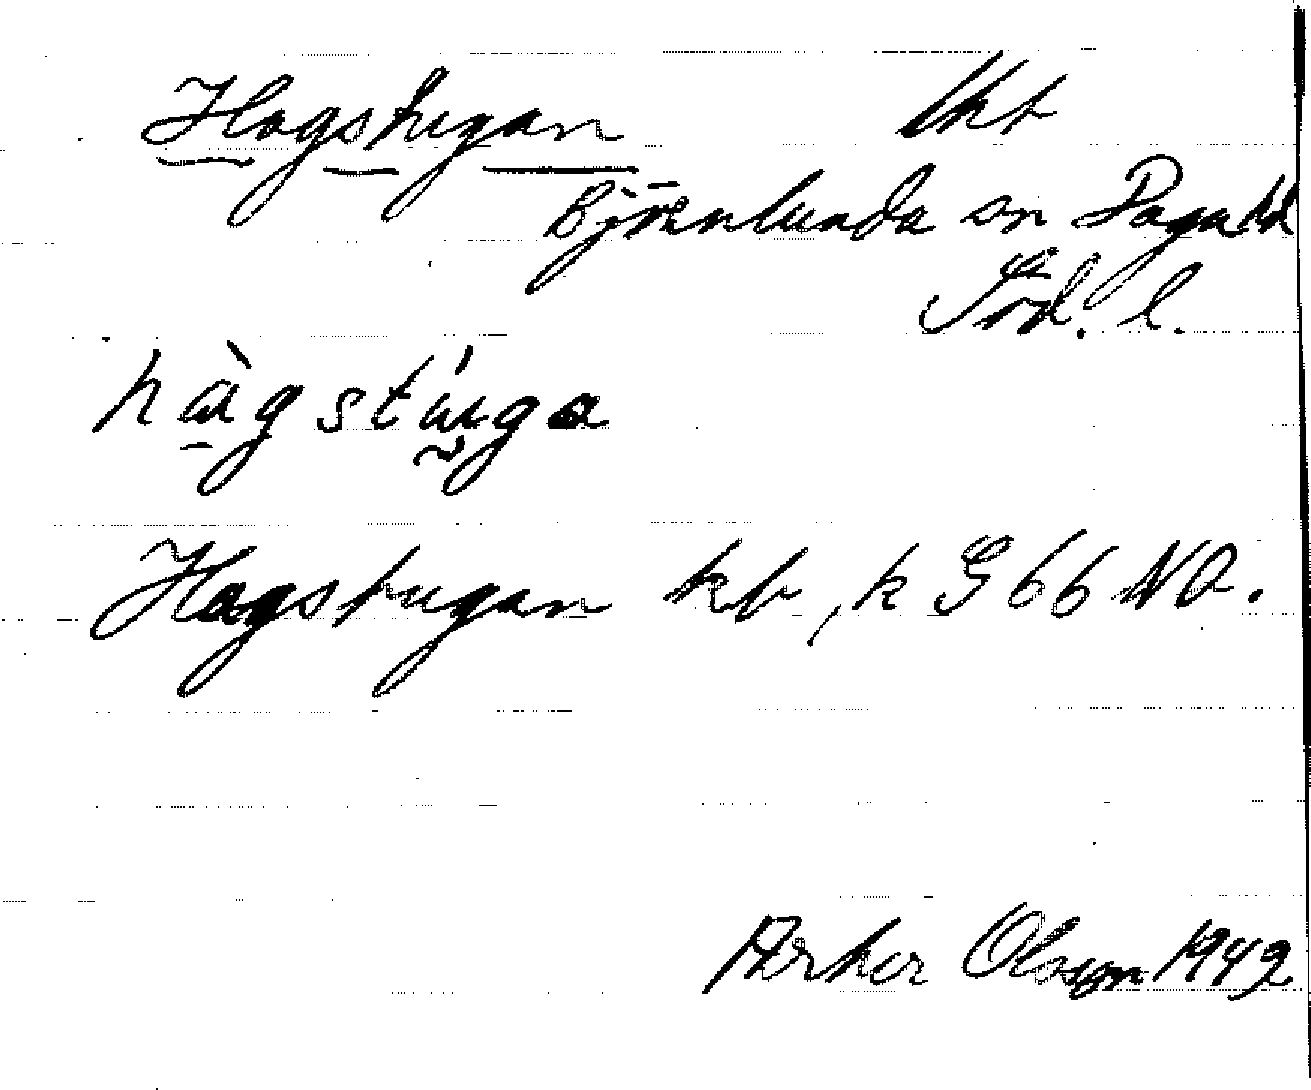 Hagstugan lkb
Björnlunda sn Daga hd
Söd. l.
hàgstúga
Hagstugan kb, k G 66 NO.
Olsson 1942